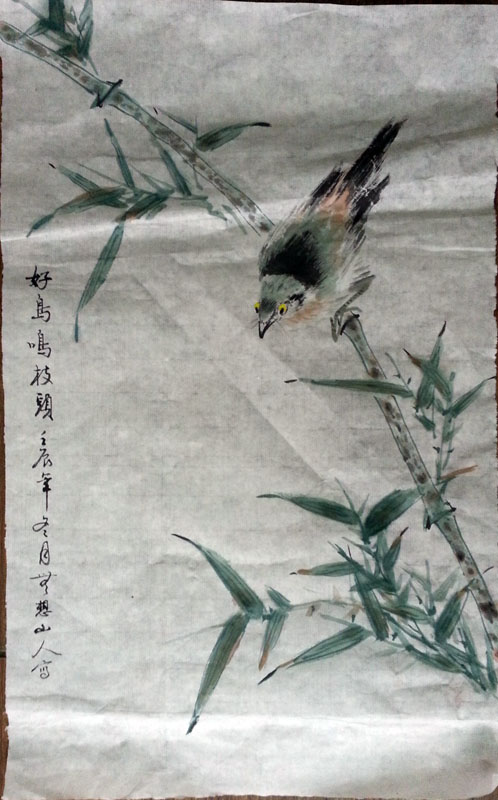 好鳥鳴枝頭壬辰年冬月無想山人寫